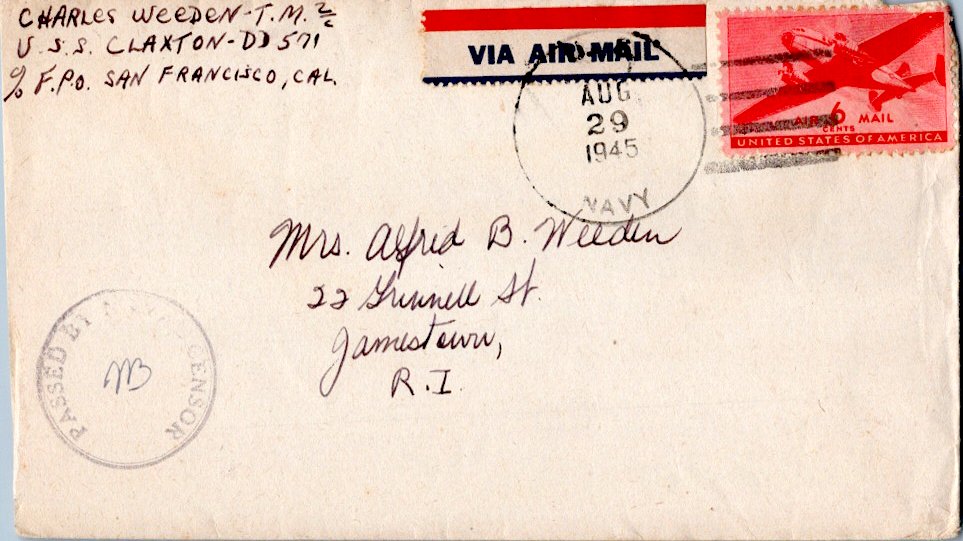 CHARLES WEEDEN - T.M. 2/c
U.S.S. CLAXTON - DD 571
c/o F.P.O. SAN FRANCISCO, CAL.
VIA AIR MAIL
AUG
29
1945
NAVY
AIR 6 MAIL
CENTS
UNITED STATES OF AMERICA
Mrs. Alfred B. Weeden
22 Grinnell St.
Jamestown,
R.I.
PASSED BY NAVAL CENSOR
MB